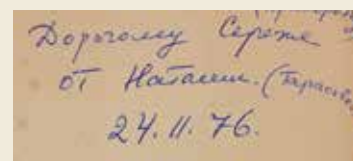 Дорогому Сереже
от Наташи.
24.11.76.